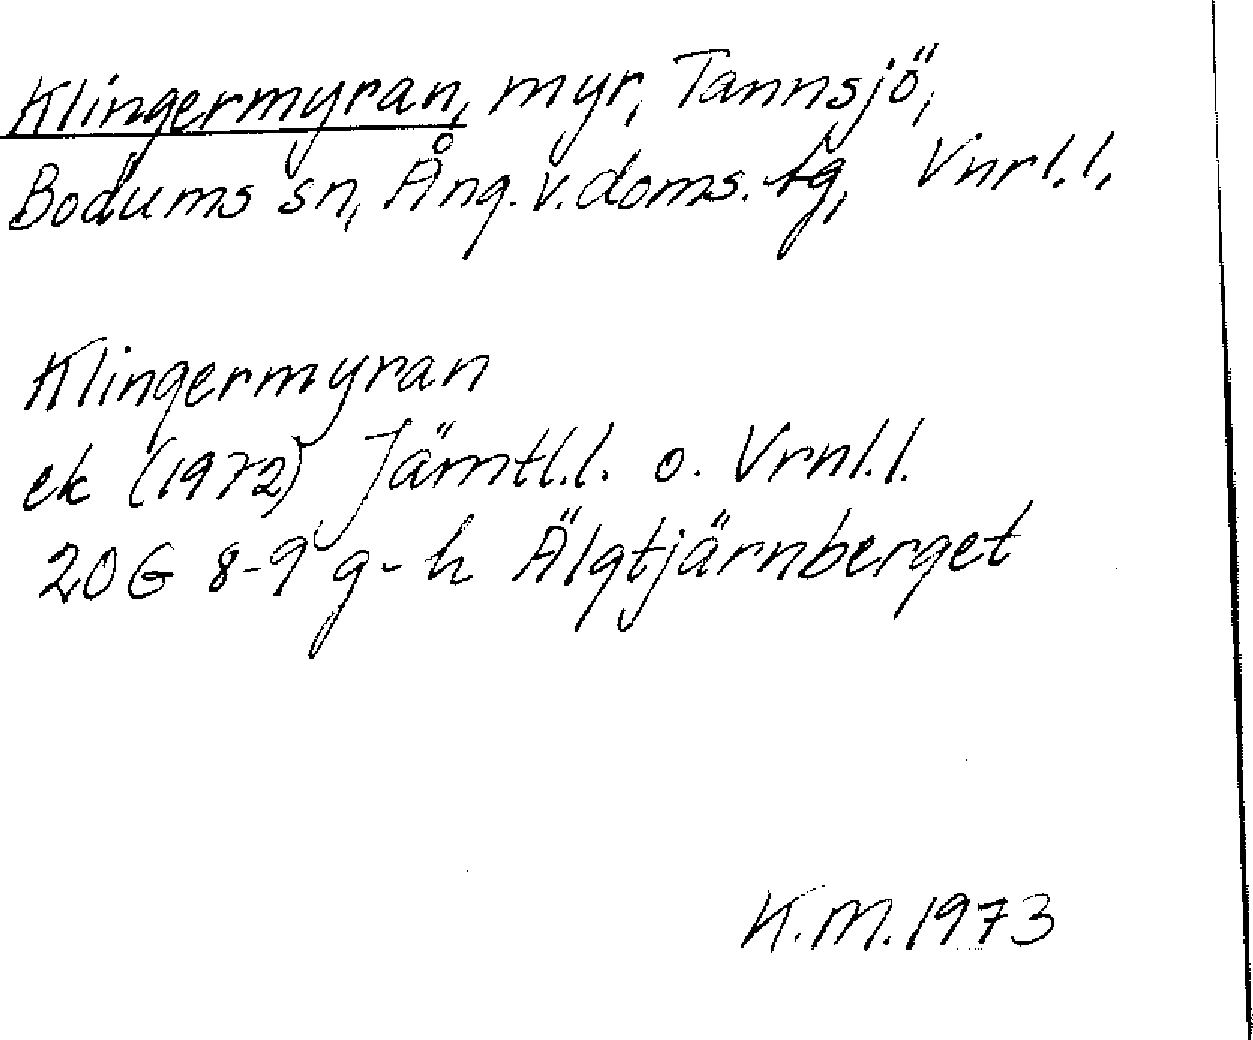 Klingermyran, myr, Tannsjö,
Bodums sn, Ång. v. doms. tg, Vnrl.l.
Klingermyran
ek (1972) Jämtl.l. o. Vrnl.l.
20G 8-9 g-h Älgtjärnberget
K.M. 1973